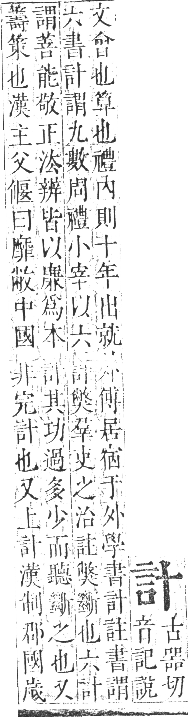 計
古器切
音記說
文會也算也禮內則十年出就外傅居宿于外學書計註書謂
六書計謂九數周禮小宰以六計弊羣吏之治註弊斷也六計
謂善能敬正法辨皆以廉爲本計其功過多少而聽斷之也又
籌策也漢主父偃曰靡敝中國非完計也又上計漢制郡國歲